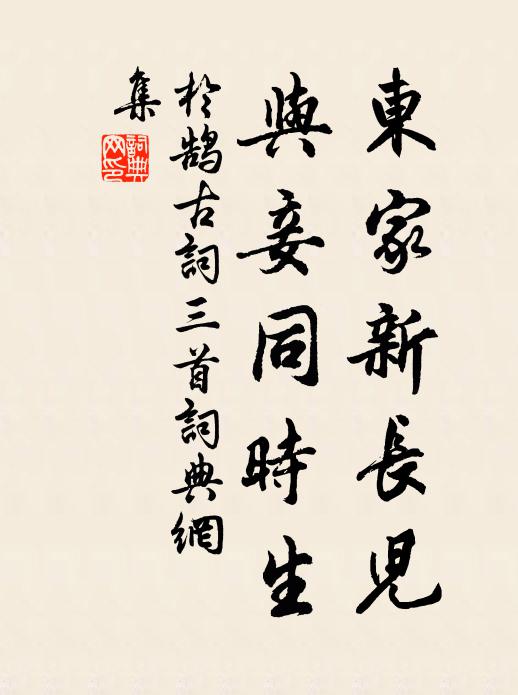 東家新長兒
與妾同時生
於鵠古詞三首詞典網
集
詞典
網印